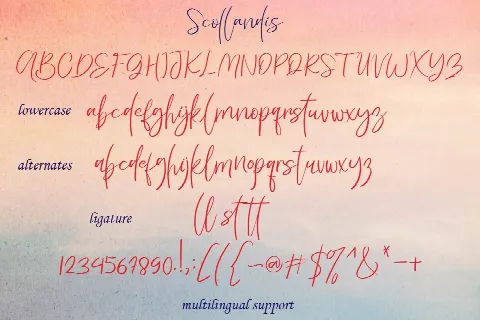 Scollandis
ABCDEFGHIJKLMNOPQRSTUVWXYZ
lowercase abcdefghijklmnopqrstuvwxyz
alternates abcdefghijklmnopqrstuvwxyz
ligature ll st tt
1234567890.!,:([{~@#$%^&*-+
multilingual support